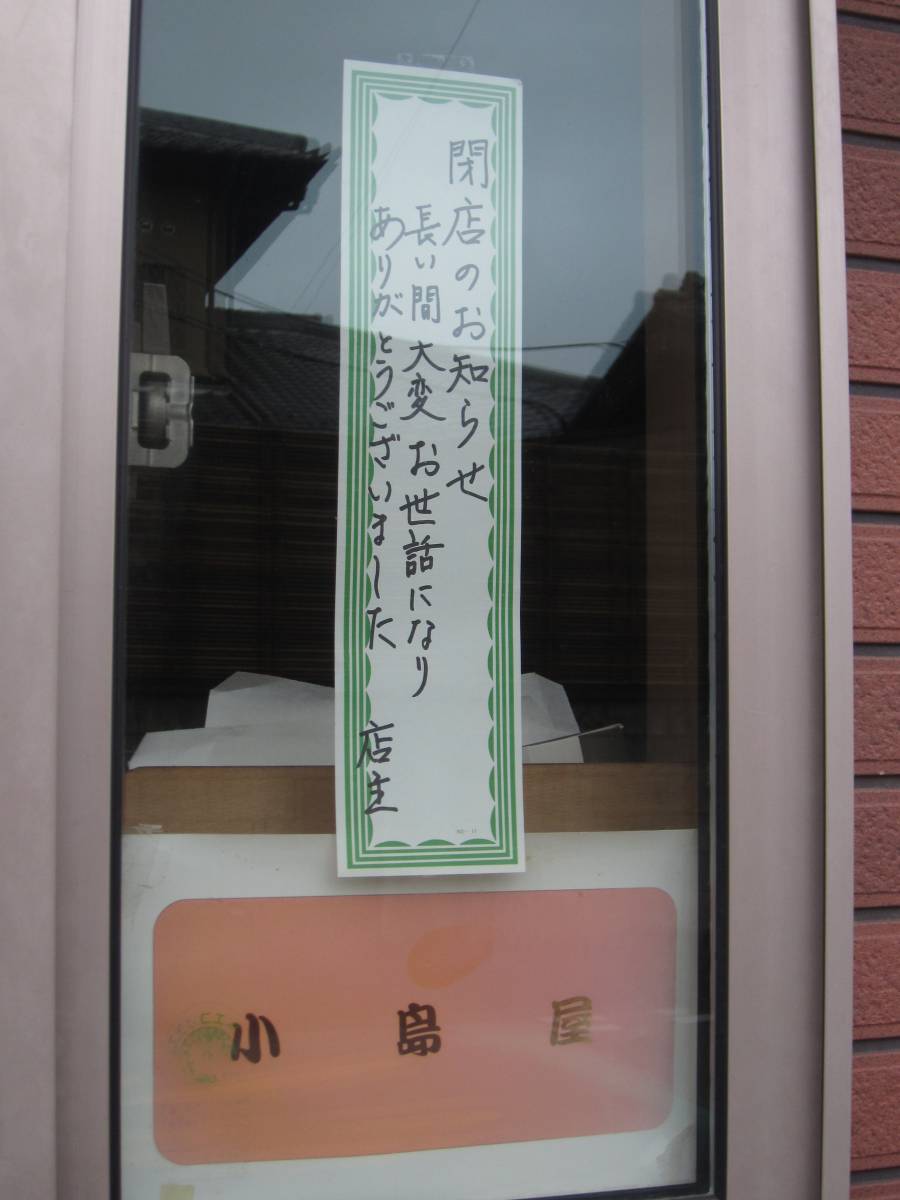 閉店のお知らせ
長い間大変お世話になり
ありがとうございました 店主
小島屋